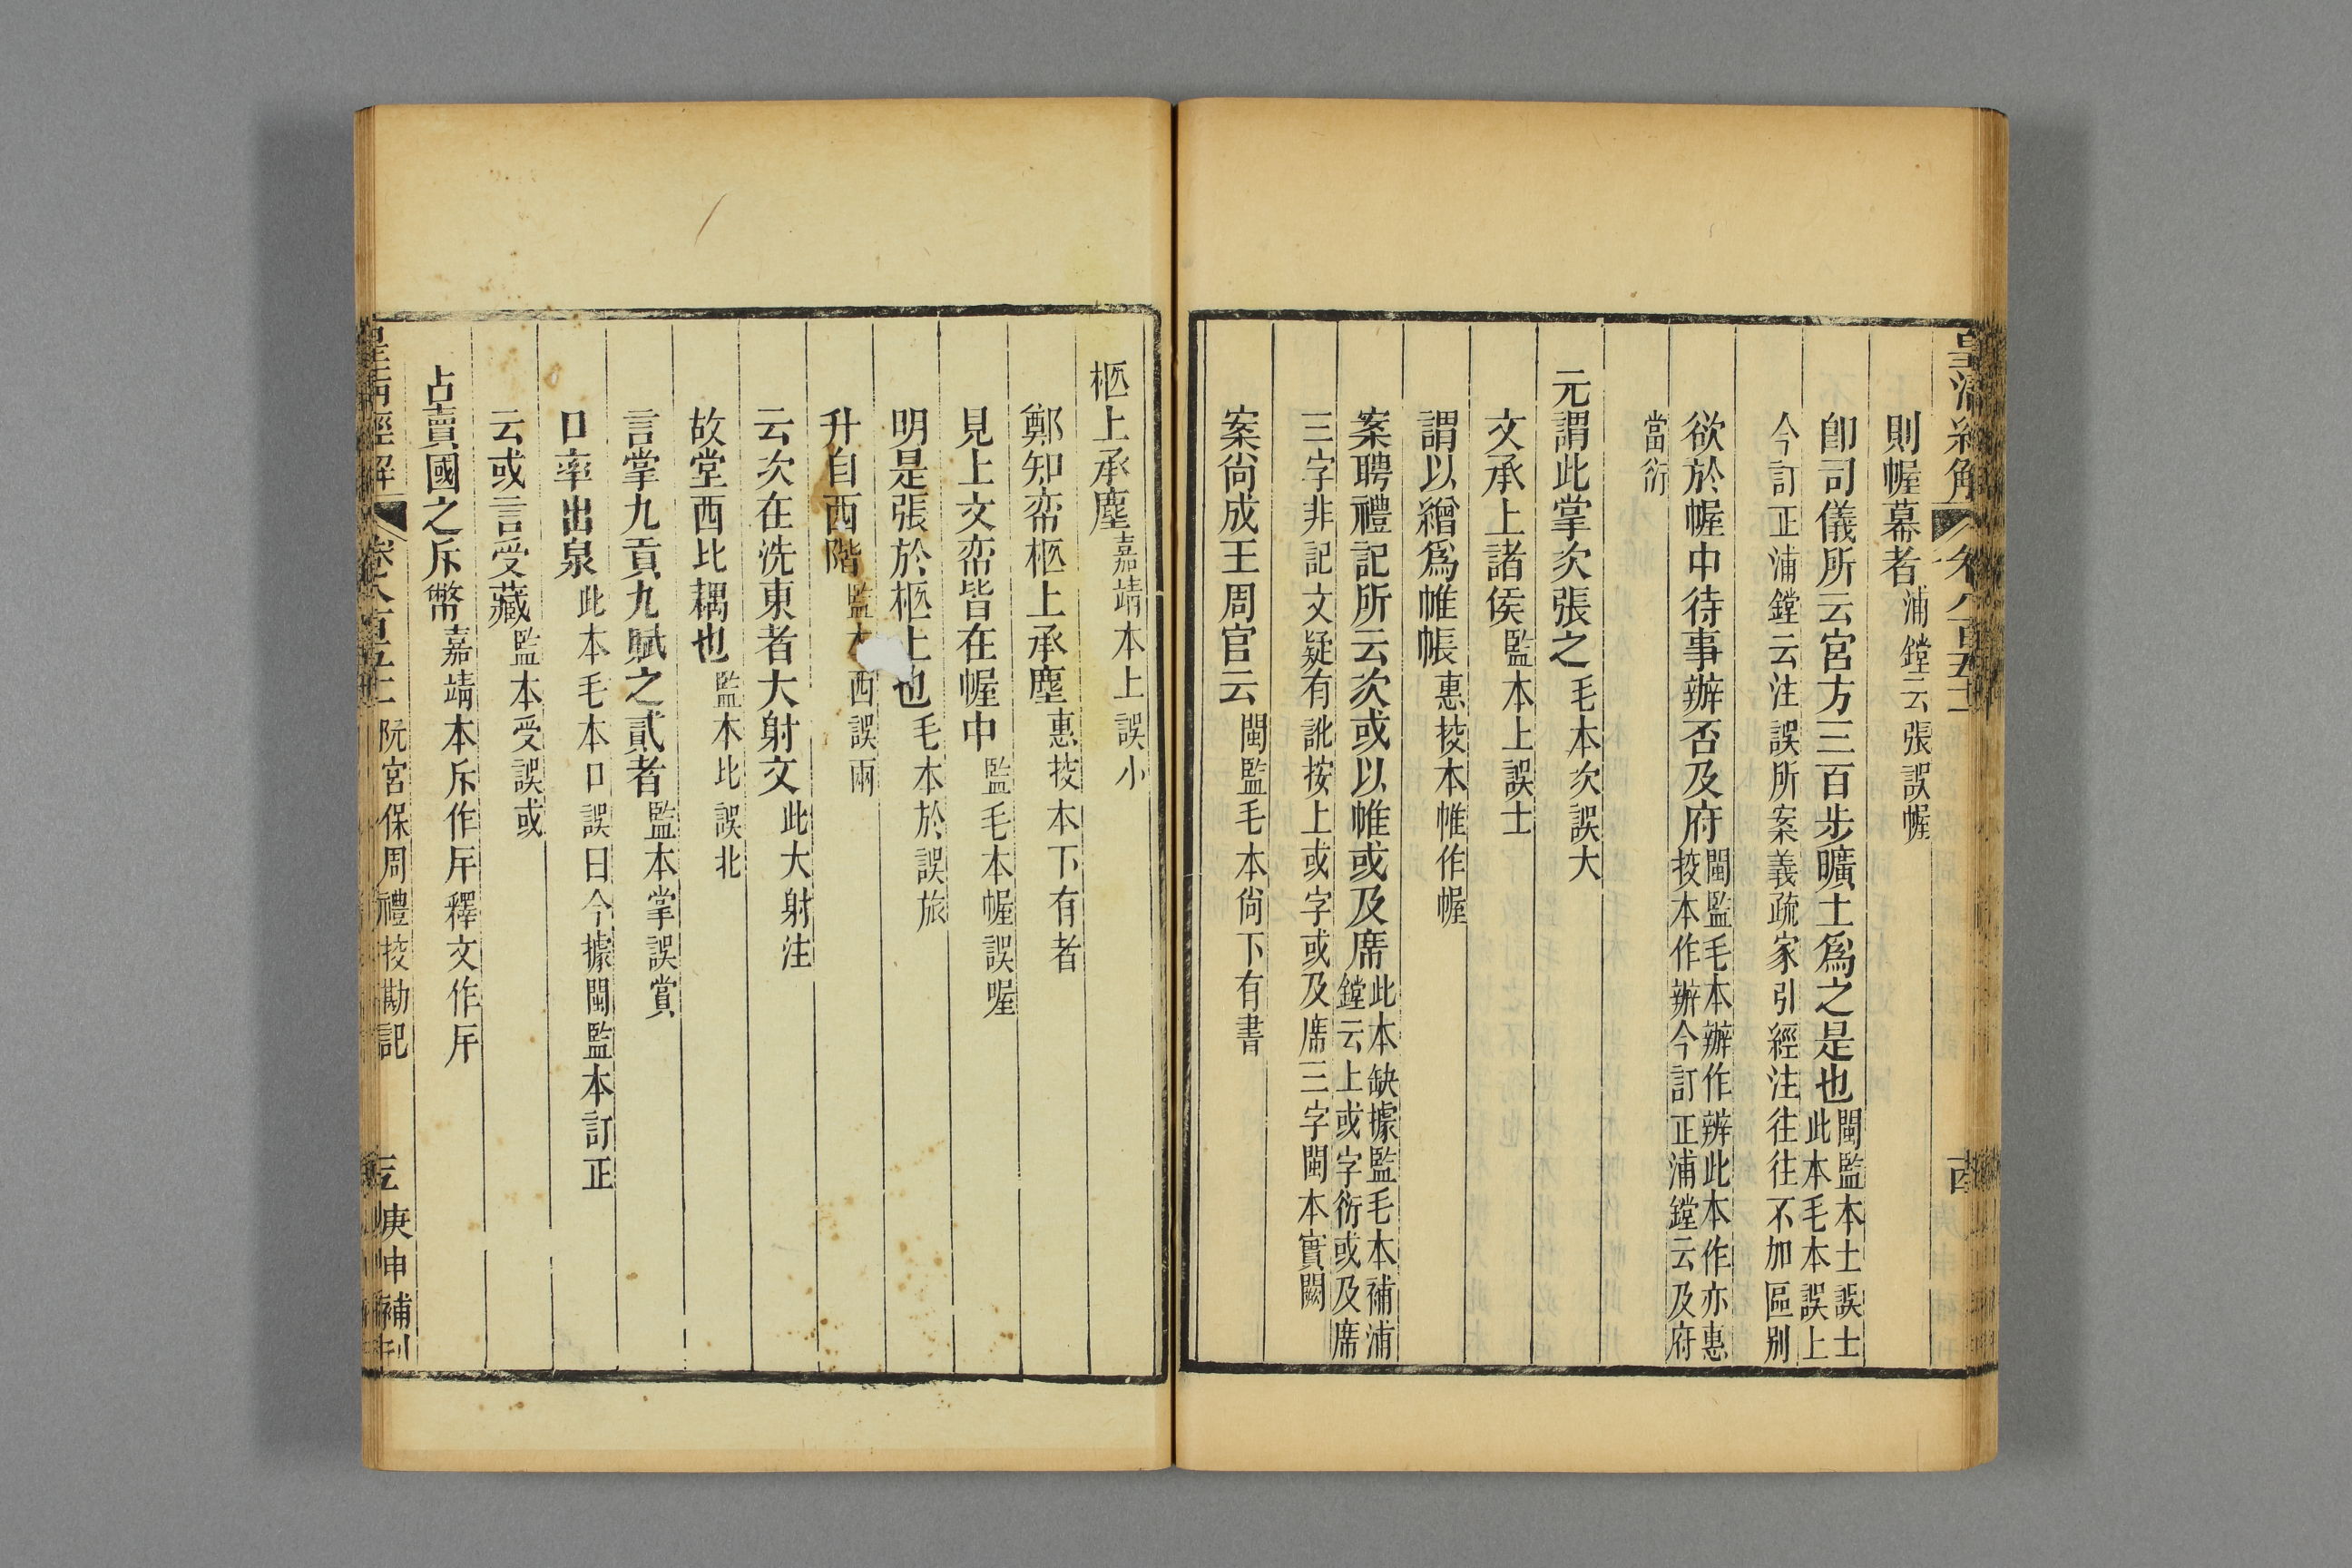 皇清經解 卷八百五十
則幄幕者浦鏜云張誤幄
卽司儀所云宮方三百步曠土爲之是也閩監本士誤士此本毛本誤上
今訂正浦鏜云注誤所案義疏家引經注往往不加區别
欲於幄中待事辦否及府閩監毛本辦作辨此本作亦惠挍本作辦今訂正浦鏜云及府
當衍
元謂此掌次張之毛本次誤大
文承上諸侯監本上誤士
謂以繒爲帷帳惠挍本帷作幄
案聘禮記所云次或以帷或及席此本缺據監毛本補浦鏜云上或字衍或及席
三字非記文疑有訛按上或字或及席三字閩本實闕
案尙成王周官云閩監毛本尙下有書
柩上承塵嘉靖本上誤小
鄭知帟柩上承塵惠挍本下有者
見上文帟皆在幄中監毛本幄誤喔
明是張於柩上也毛本於誤旅
升自西階監本西誤兩
云次在洗東者大射文此大射注
故堂西比耦也監木比誤北
言掌九貢九賦之貳者監本掌誤賞
口率出泉此本毛本口誤日今據閩監本訂正
云或言受藏監本受誤或
占賣國之斥幣嘉靖本斥作㡿釋文作㡿
皇清經解 卷八百五十 阮宮保周禮挍勘記 庚申補刊